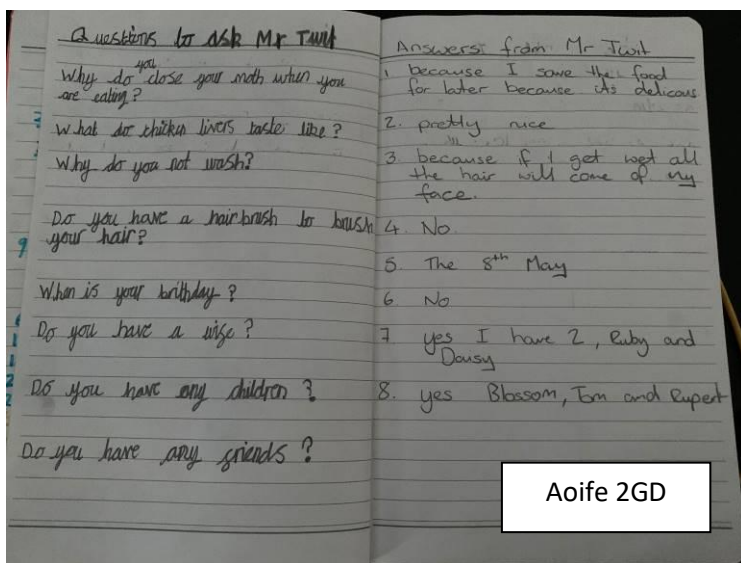 Questions to ask Mr Twit
Why do you close your moth when you
are eating?
What do chicken livers taste like?
Why do you not wash?
Do you have a hairbrush to brush
your hair?
When is your brithday?
Do you have a wife?
Do you have any children?
Do you have any friends?
Answers from Mr Twit
1 because I save the food
for later because its delicous
2. pretty nice
3. because if I get wet all
the hair will come of my
face.
4. No.
5. The 8th May
6. No
7 yes I have 2, Ruby and
Daisy
8. yes Blossom, Tom and Rupert
Aoife 2GD